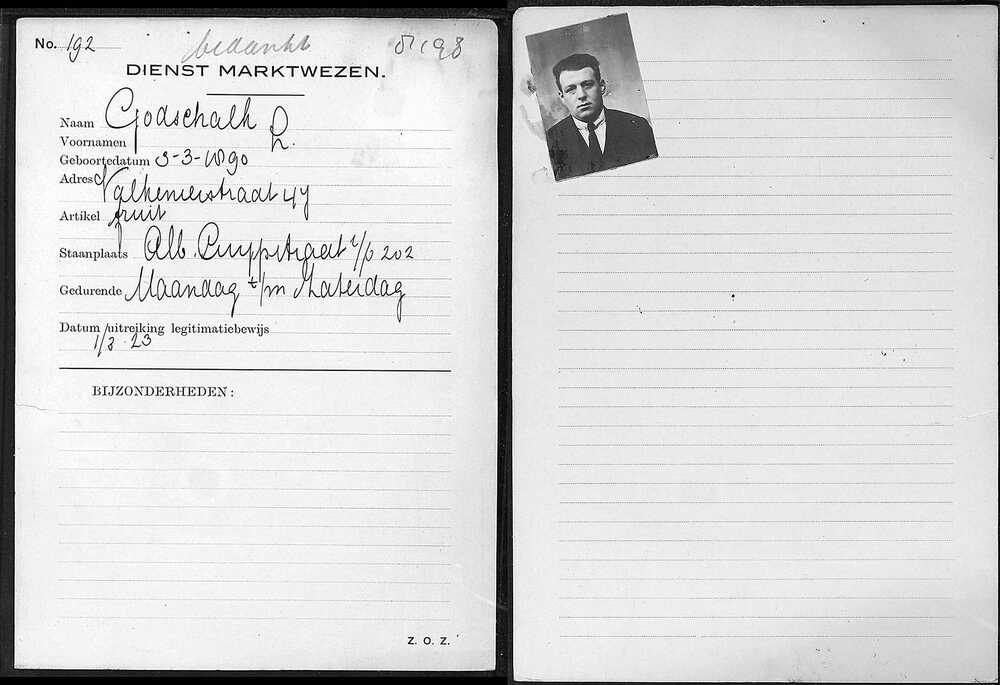 No. 192 bedankt
DIENST MARKTWEZEN.
Naam Godschalk
Voornamen
Geboortedatum 3-3-1890
Adres Valkenierstraat 47
Artikel fruit
Staanplaats Alb. Cuypstraat t/o 202
Gedurende Maandag t/m Zaterdag
Datum uitreiking legitimatiebewijs
1/3 23
BIJZONDERHEDEN:
Z. O. Z.